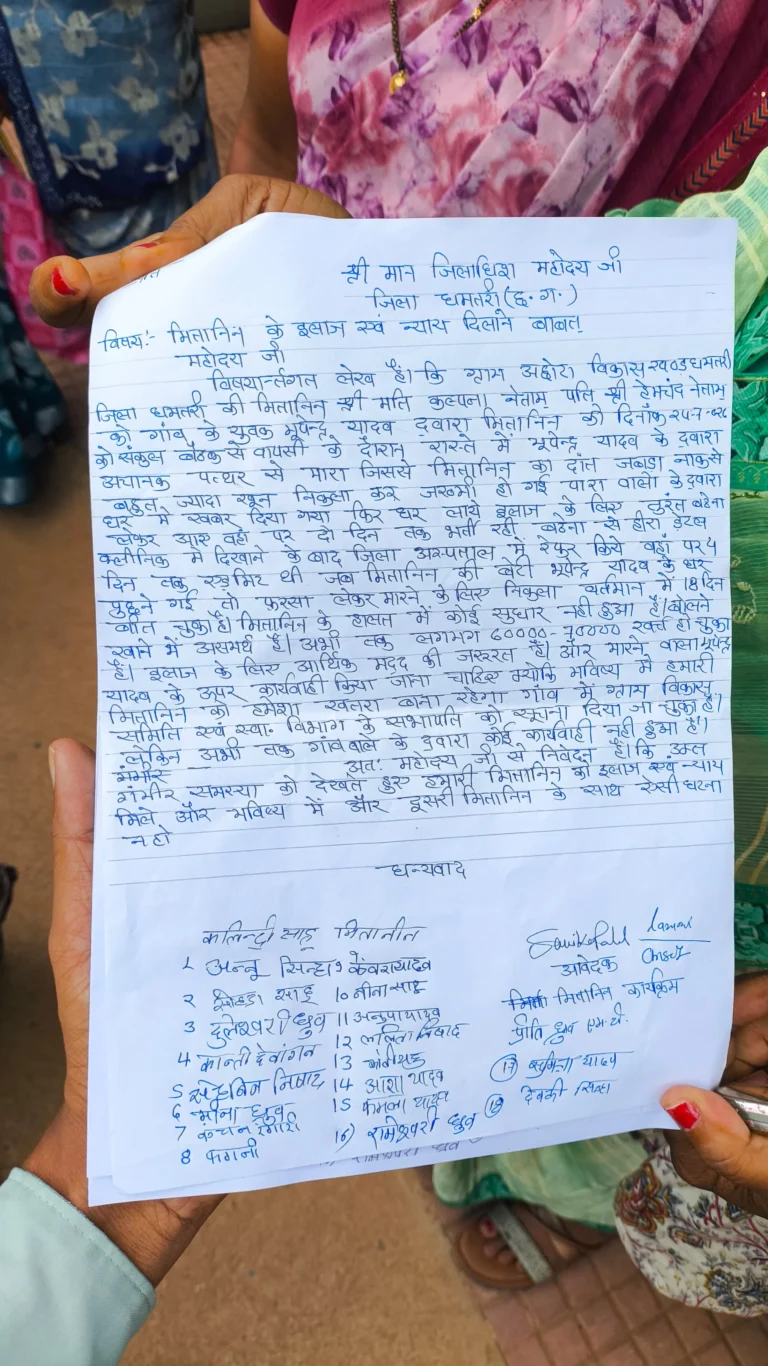 श्री मान जिलाधिश महोदय जी
जिला धमतरी (छ. ग.)
विषय:- मितानिन के इलाज एवं न्याय दिलाने बाबत्
महोदय जी
विषयान्तर्गत लेख है। कि ग्राम अछोटा विकासखण्ड धमतरी
जिला धमतरी की मितानिन श्री मति कल्पना नेताम पति श्री हेमचंद नेताम
को गांव के युवक भूपेन्द्र यादव द्वारा मितानिन की दिनांक
को संकुल बैठक से वापसी के दौरान रास्ते में भूपेन्द्र यादव के द्वारा
अचानक पत्थर से मारा जिससे मितानिन का दांत जबाडा नाक से
बहुत ज्यादा खून निकला कर जख्मी हो गई पारा वालो के द्वारा
घर में खबर दिया गया फिर घर लाये इलाज के लिए तुरंत बठेना
लेकर आए वहां पर दो दिन तक भर्ती रही बठेना से हीरा डेंटल
क्लीनिक में दिखाने के बाद जिला अस्पताल में रेफर किये वहाँ पर 4
दिन तक एडमिट थी जब मितानिन की बेटी भूपेन्द्र यादव के घर
पुछने गई तो फरसा लेकर मारने के लिए निकला वर्तमान में 18 दिन
बीत चुका है। मितानिन के हालत में कोई सुधार नही हुआ है। बोलने
खाने में असमर्थ है। अभी तक लगभग 60000-70000 खर्च हो चुका
है। इलाज के लिए आर्थिक मदद की जरूरत है। और मारने वाला भूपेन्द्र
यादव के ऊपर कार्यवाही किया जाना चाहिए क्योकि भविष्य में हमारी
मितानिन को हमेशा खतरा बना रहेगा गांव में ग्राम विकास
समिति एवं स्वा. विभाग के सभापति को सूचना दिया जा चुका है।
लेकिन अभी तक गांव वाले के द्वारा कोई कार्यवाही नही हुआ है।
गंभीर अतः महोदय जी से निवेदन है। कि उक्त
गंभीर समस्या को देखते हुए हमारी मितानिन को इलाज एवं न्याय
मिले और भविष्य में और दूसरी मितानिन के साथ ऐसी घटना
न हो
धन्यवाद
कलिन्द्री साहू मितानीन
1 अन्नू सिन्हा 9 केंवरा यादव
आवेदक
2 साहू 10 नीना साहू
मितानिन कार्यक्रम
3 दुलेश्वरी ध्रुव 11 अनुपा यादव
प्रीति ध्रुव एम.टी.
4 कान्ती देवांगन 12 ललिता निषाद
13
17 यादव
5 निषाद 14 आशा यादव
6 मीना ध्रुव 15 कमला यादव
18 देवकी सिन्हा
7 कंचन
16) रामेश्वरी ध्रुव
8